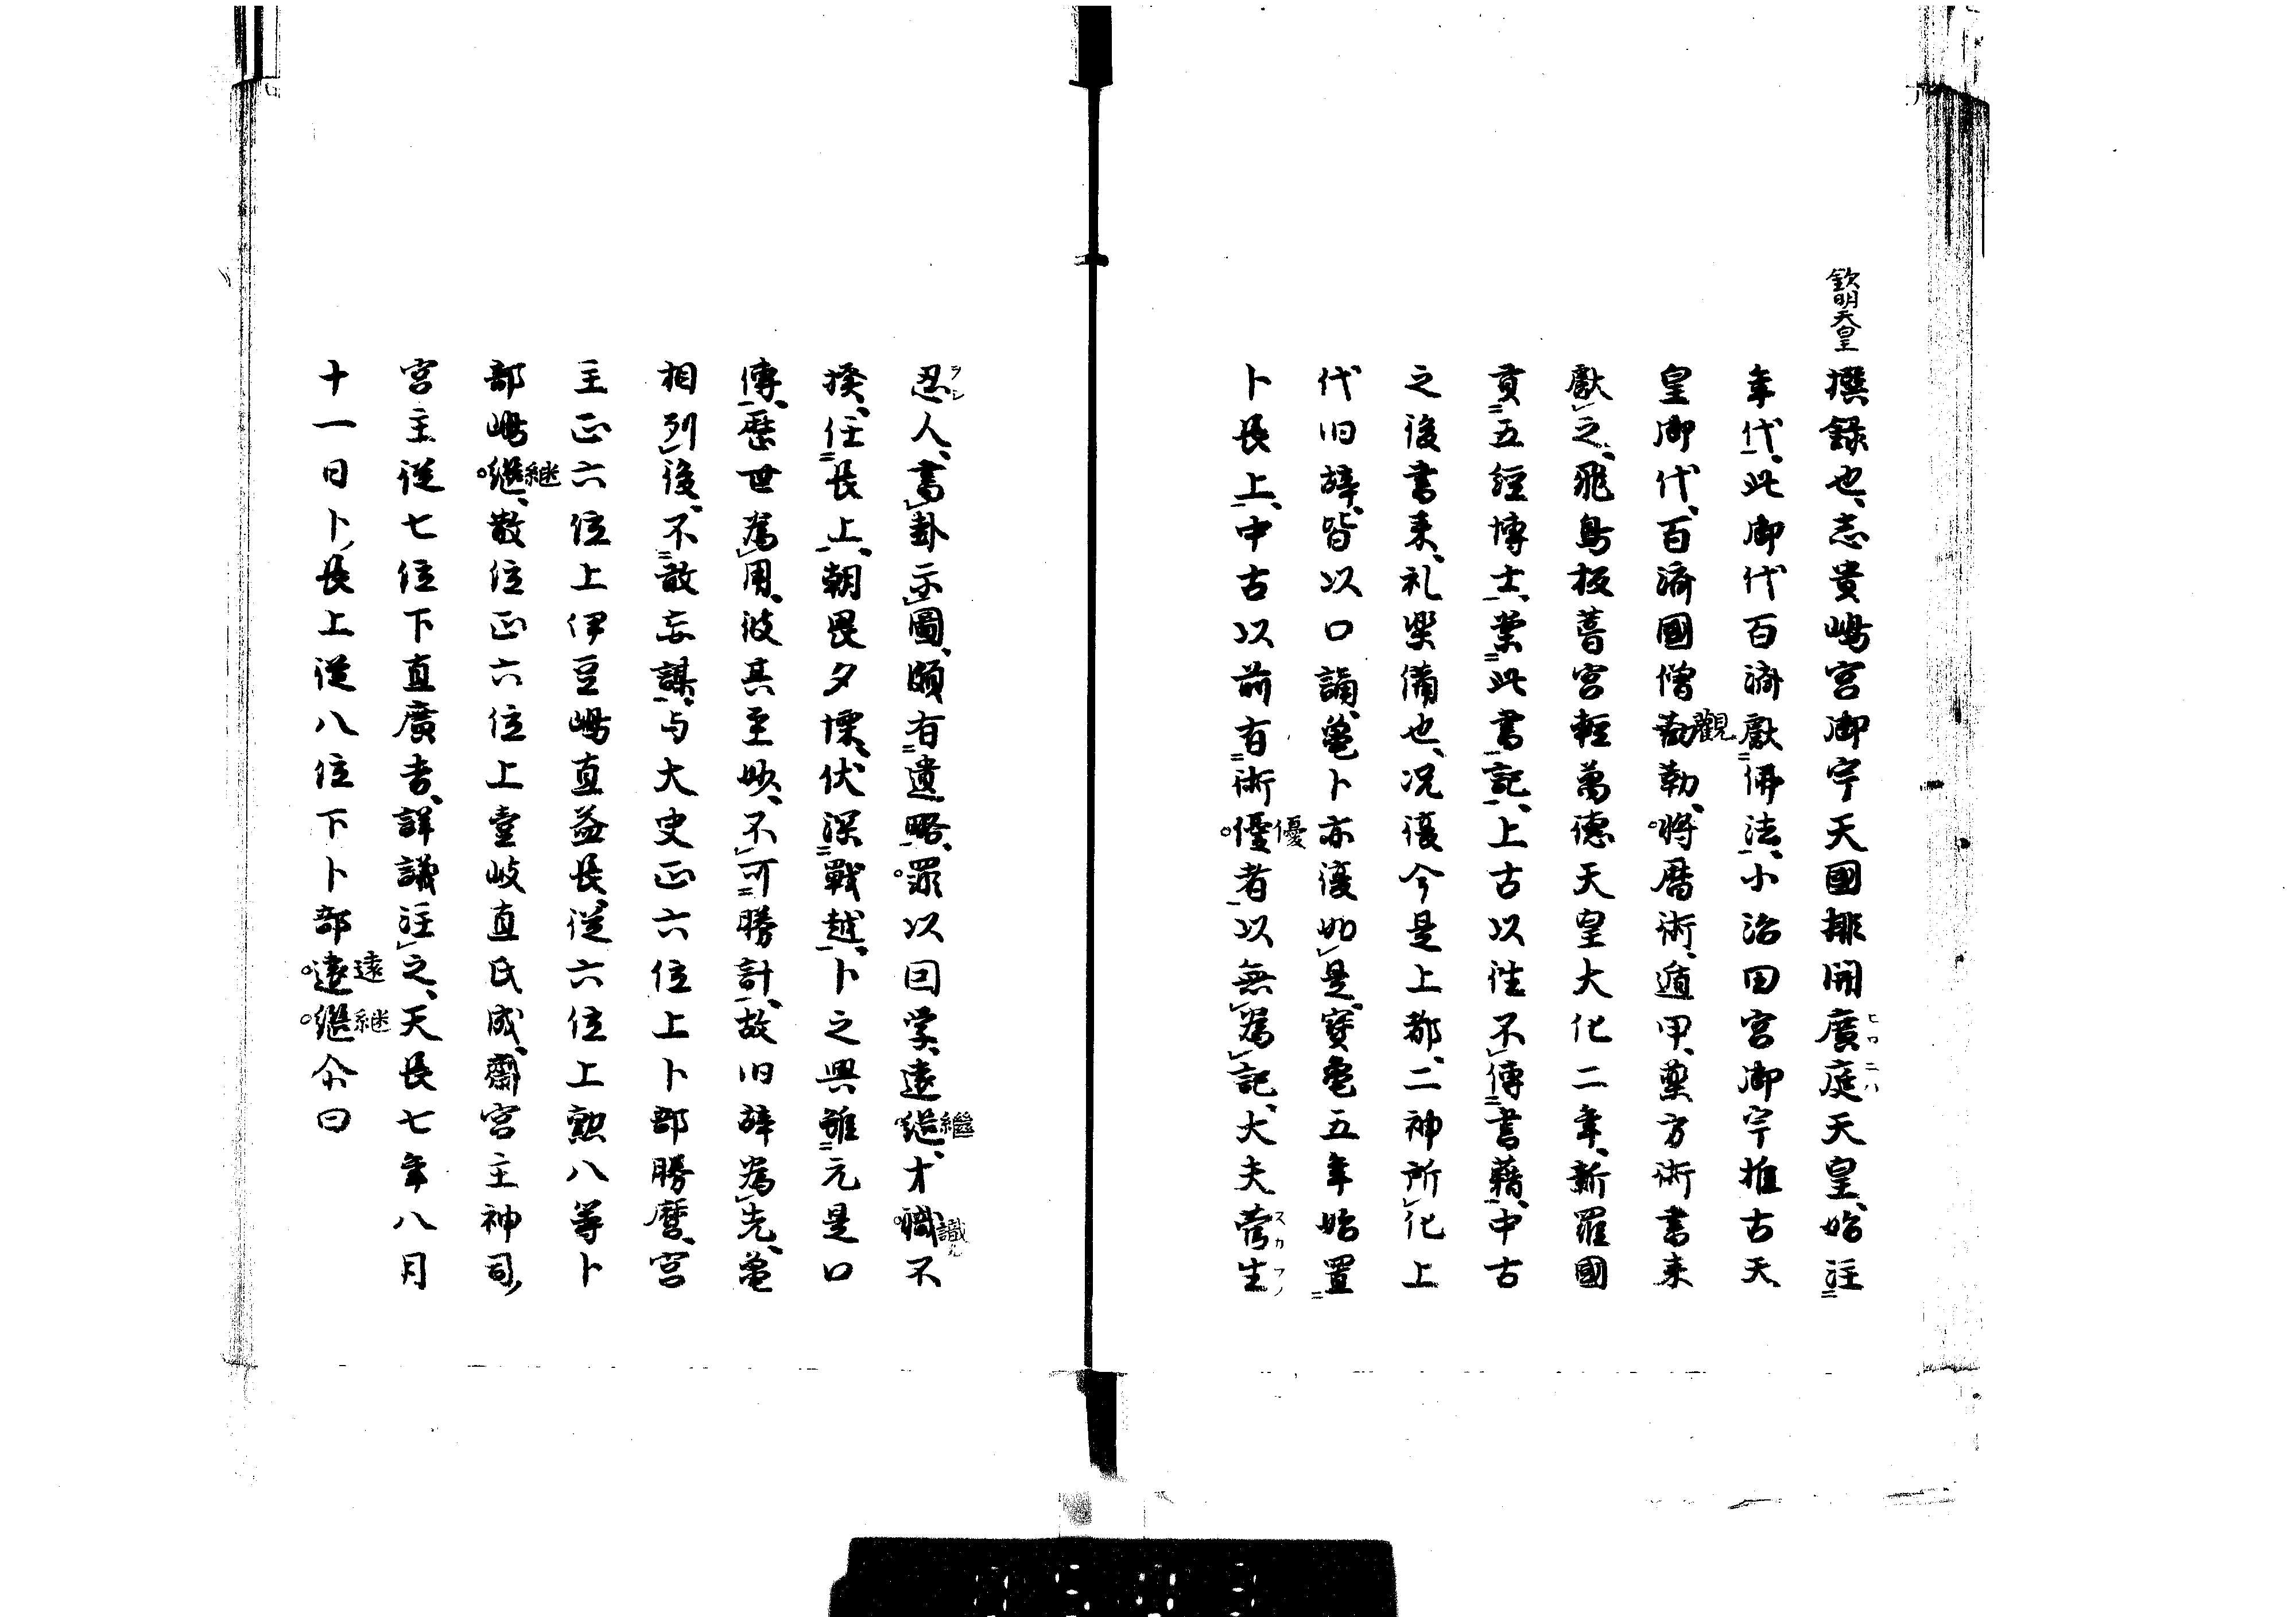 欽明天皇
撰録也、志貴嶋宮御宇天國排開廣庭天皇、始注
年代、此御代百済獻佛法、小治田宮御宇推古天
皇御代、百済國僧勧観勒、将暦術、遁甲、藥方術書来
獻之、飛鳥板葺宮軽萬徳天皇大化二年、新羅國
貢五經博士、業此書記、上古以往不傳書藉、中古
之後書来、礼楽備也、况復今是上都、二神所化上
代旧辞、皆以口誦、亀卜亦復如是、寳亀五年始置
卜長上、中古以前有術優優者以無為記、大夫菅生
忍人、書卦示圖、頗有遺略、眾以曰学、遠継繼、才職識不
揆、任長上、朝畏夕慄、伏深戰越、卜之興雖元是口
傳、歴世為用、彼其至妙、不可勝計、故旧辞為先、亀
相列後、不敢忘謀、与大史正六位上卜部勝麿、宮
主正六位上伊豆嶋直益長、従六位上勲八等卜
部嶋継継、散位正六位上壹岐直氏成、齋宮主神司、
宮主従七位下直廣吉、詳議注之、天長七年八月
十一日卜長上従八位下卜部遠遠継継尒曰